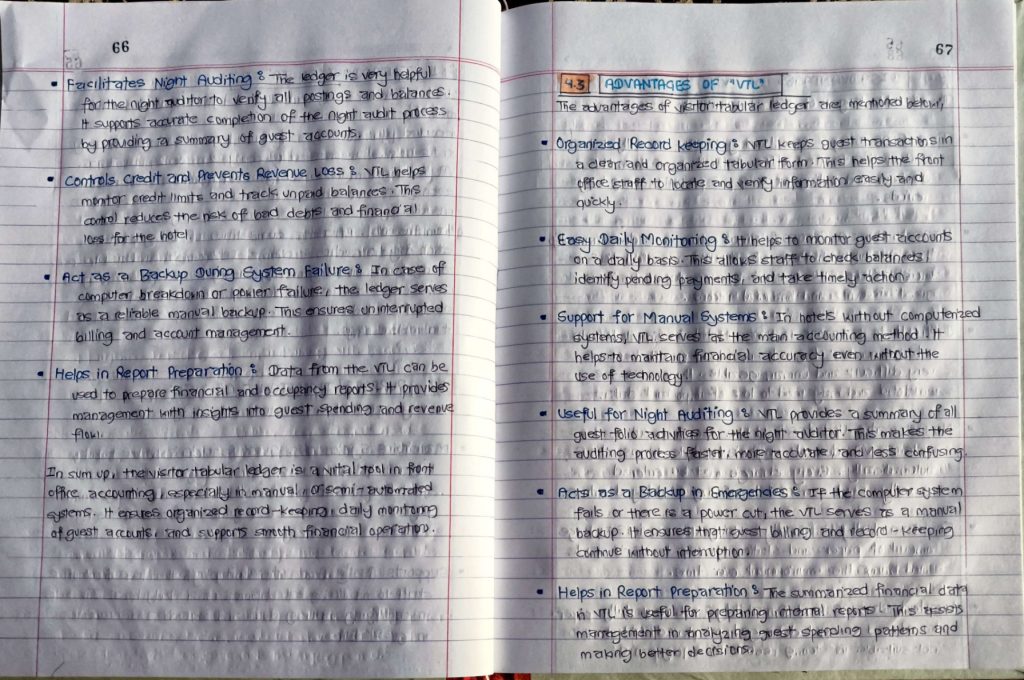 66
• Facilitates Night Auditing : The ledger is very helpful
for the night auditor to verify all postings and balances.
It supports accurate completion of the night audit process
by providing a summary of guest accounts.
• Controls Credit and Prevents Revenue Loss : VTL helps
monitor credit limits and tracks unpaid balances. This
control reduces the risk of bad debts and financial
loss for the hotel.
• Act as a Backup During System Failure : In case of
computer breakdown or power failure, the ledger serves
as a reliable manual backup. This ensures uninterrupted
billing and account management.
• Helps in Report Preparation : Data from the VTL can be
used to prepare financial and occupancy reports. It provides
management with insights into guest spending and revenue
flow.
In sum up, the visitor tabular ledger is a vital tool in front
office accounting, especially in manual or semi-automated
systems. It ensures organized record-keeping, daily monitoring
of guest accounts, and supports smooth financial operation.
67
4.3 ADVANTAGES OF "VTL"
The advantages of visitor tabular ledger are, mentioned below,
• Organized Record keeping : VTL keeps guest transactions in
a clear and organized tabular form. This helps the front
office staff to locate and verify information easily and
quickly.
• Easy Daily Monitoring : It helps to monitor guest accounts
on a daily basis. This allows staff to check balances,
identify pending payments, and take timely action.
• Support for Manual Systems : In hotels without computerized
systems, VTL serves as the main accounting method. It
helps to maintain financial accuracy even without the
use of technology.
• Useful for Night Auditing : VTL provides a summary of all
guest folio activities for the night auditor. This makes the
auditing process faster, more accurate, and less confusing.
• Acts as a Backup in Emergencies : If the computer system
fails or there is a power cut, the VTL serves as a manual
backup. It ensures that guest billing and record-keeping
continue without interruption.
• Helps in Report Preparation : The summarized financial data
in VTL is useful for preparing internal reports. This assists
management in analyzing guest spending patterns and
making better decisions.